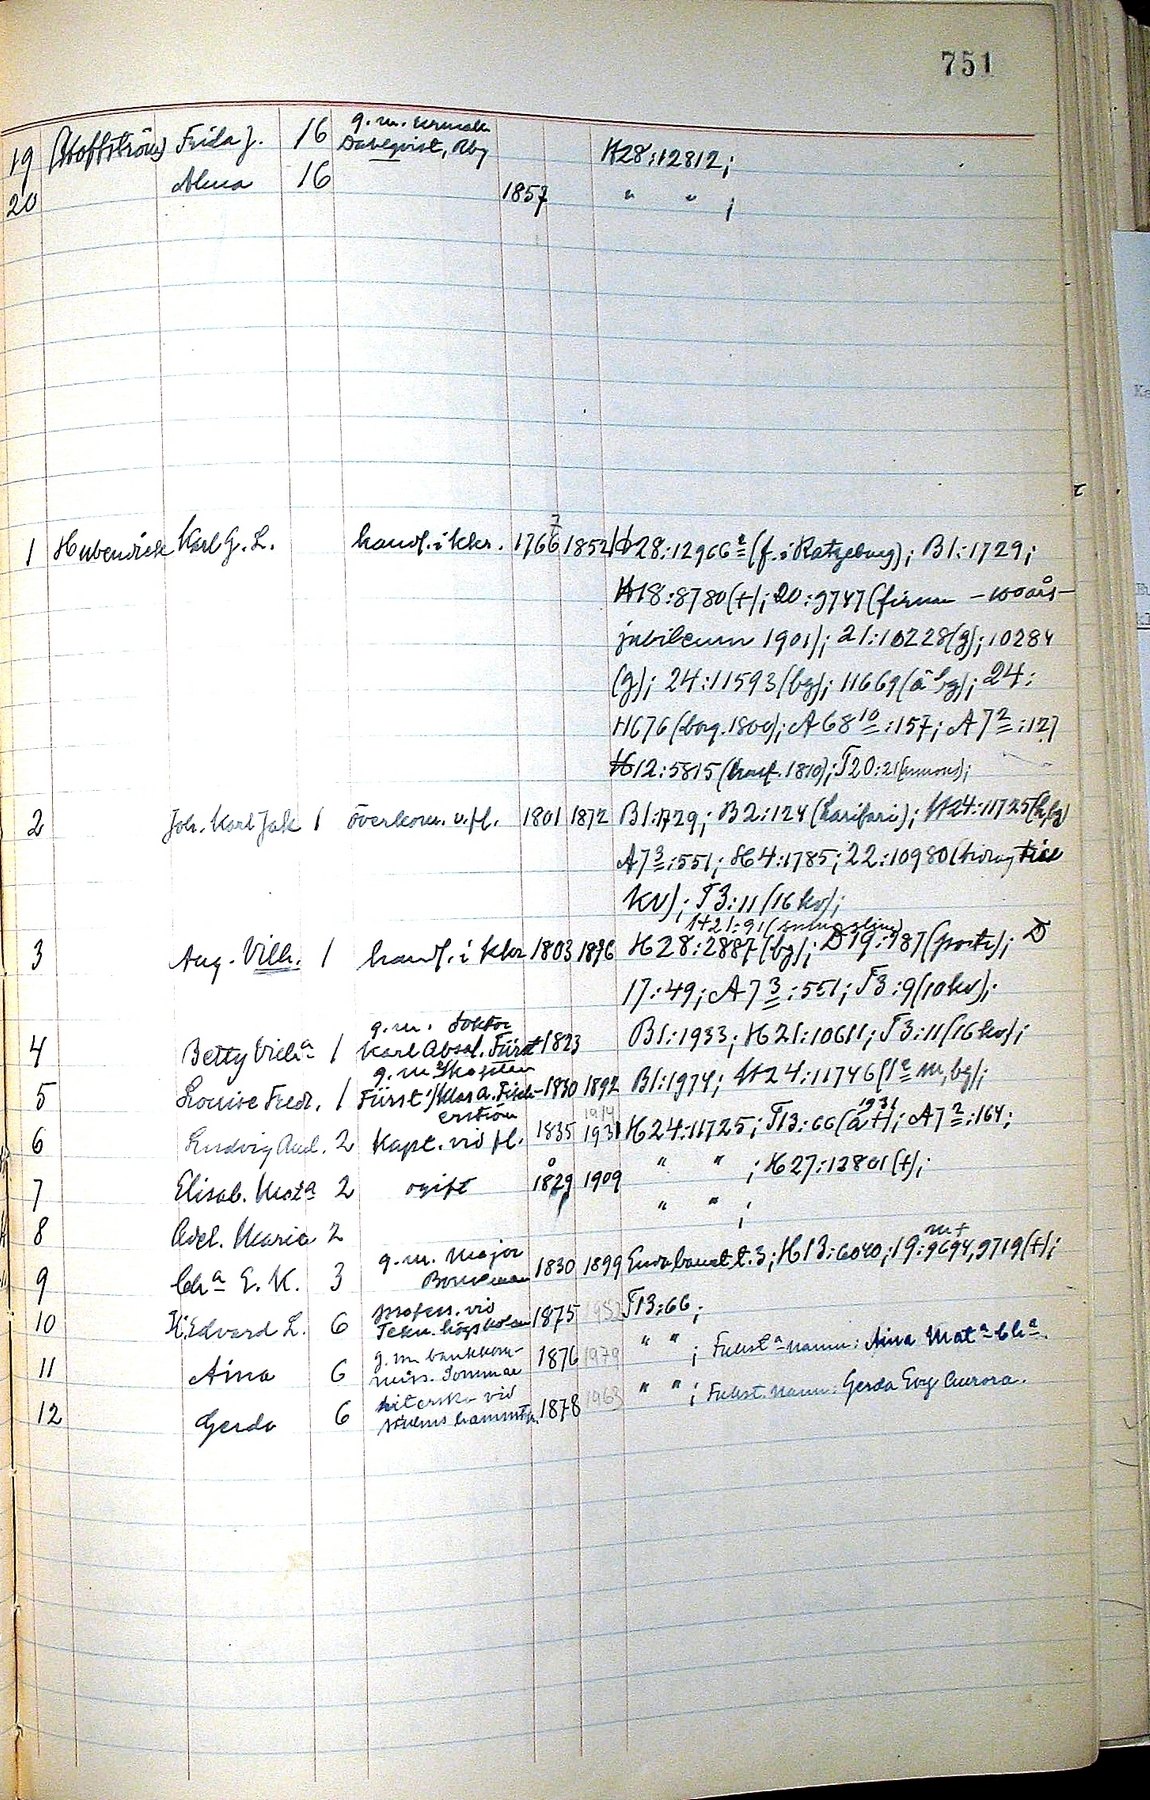 751
19 (Hoffström) Frida J. 16 g. m. krusmak
Dahlqvist, Rby H28:12812;
20 Alma 16 1857 " " ;
1 Hubendick Karl G. L. handl. i kkr. 1766 7 1852 H28:12966 (f. i Ratzeburg); B1:1729;
H18:8780(+); 20:9747 (firma - 100 års-
jubileum 1901); 21:10228(g); 10284
(g); 24:11593(bg); 11669(å bg); 24:
11676 (borg. 1800); A68 10:157; A7 2:127
H12:5815 (1810); T20:21 (annons);
2 Joh. Karl Jak 1 överkom. v. fl. 1801 1872 B1:1729; B2:124 (Larifari); H24:11725
A7 3:551; H4:1785; 22:10980
kv); T3:11 (16 kv);
H21:91
3 Aug. Vilh. 1 handl. i kkr 1803 1876 H28:2887 (bg); D19:987; D
17:49; A7 3:551; T3:9 (10 kv);
4 Betty Vilh a 1 g. m. doktor
Karl Absal. Fürst 1823 B1:1933; H21:10611; T3:11 (16 kv);
5 Louise Fredr. 1 g. m.
Fürst Klas A. Fisch-
erström 1830 1892 B1:1974; H24:11746 (1e m, bg);
6 Ludvig Aul. 2 Kapt. vid fl. 1835 1914 1931 H24:11725; T13:66 (å +) 1931; A7 2:164;
7 Elisab. Mat a 2 ogift 1829 1909 " " ; H27:12801 (+);
8 Adel. Maria 2 " " ;
9 Ch a E. K. 3 g. m. major
Borneman 1830 1899 t. 3; H13:6040; 19:9694, 9719 (+); m +
10 K. Edvard L. 6 profess. vid
Tekn. högskolan 1875 1952 T13:66;
11 Aina 6 g. m. bankkom-
miss. Sommar 1876 1979 " " ; Fullst a namn: Aina Mat a Ch a.
12 Gerda 6 vid
1878 1963 " " ; Fullst. namn: Gerda Evy Aurora.